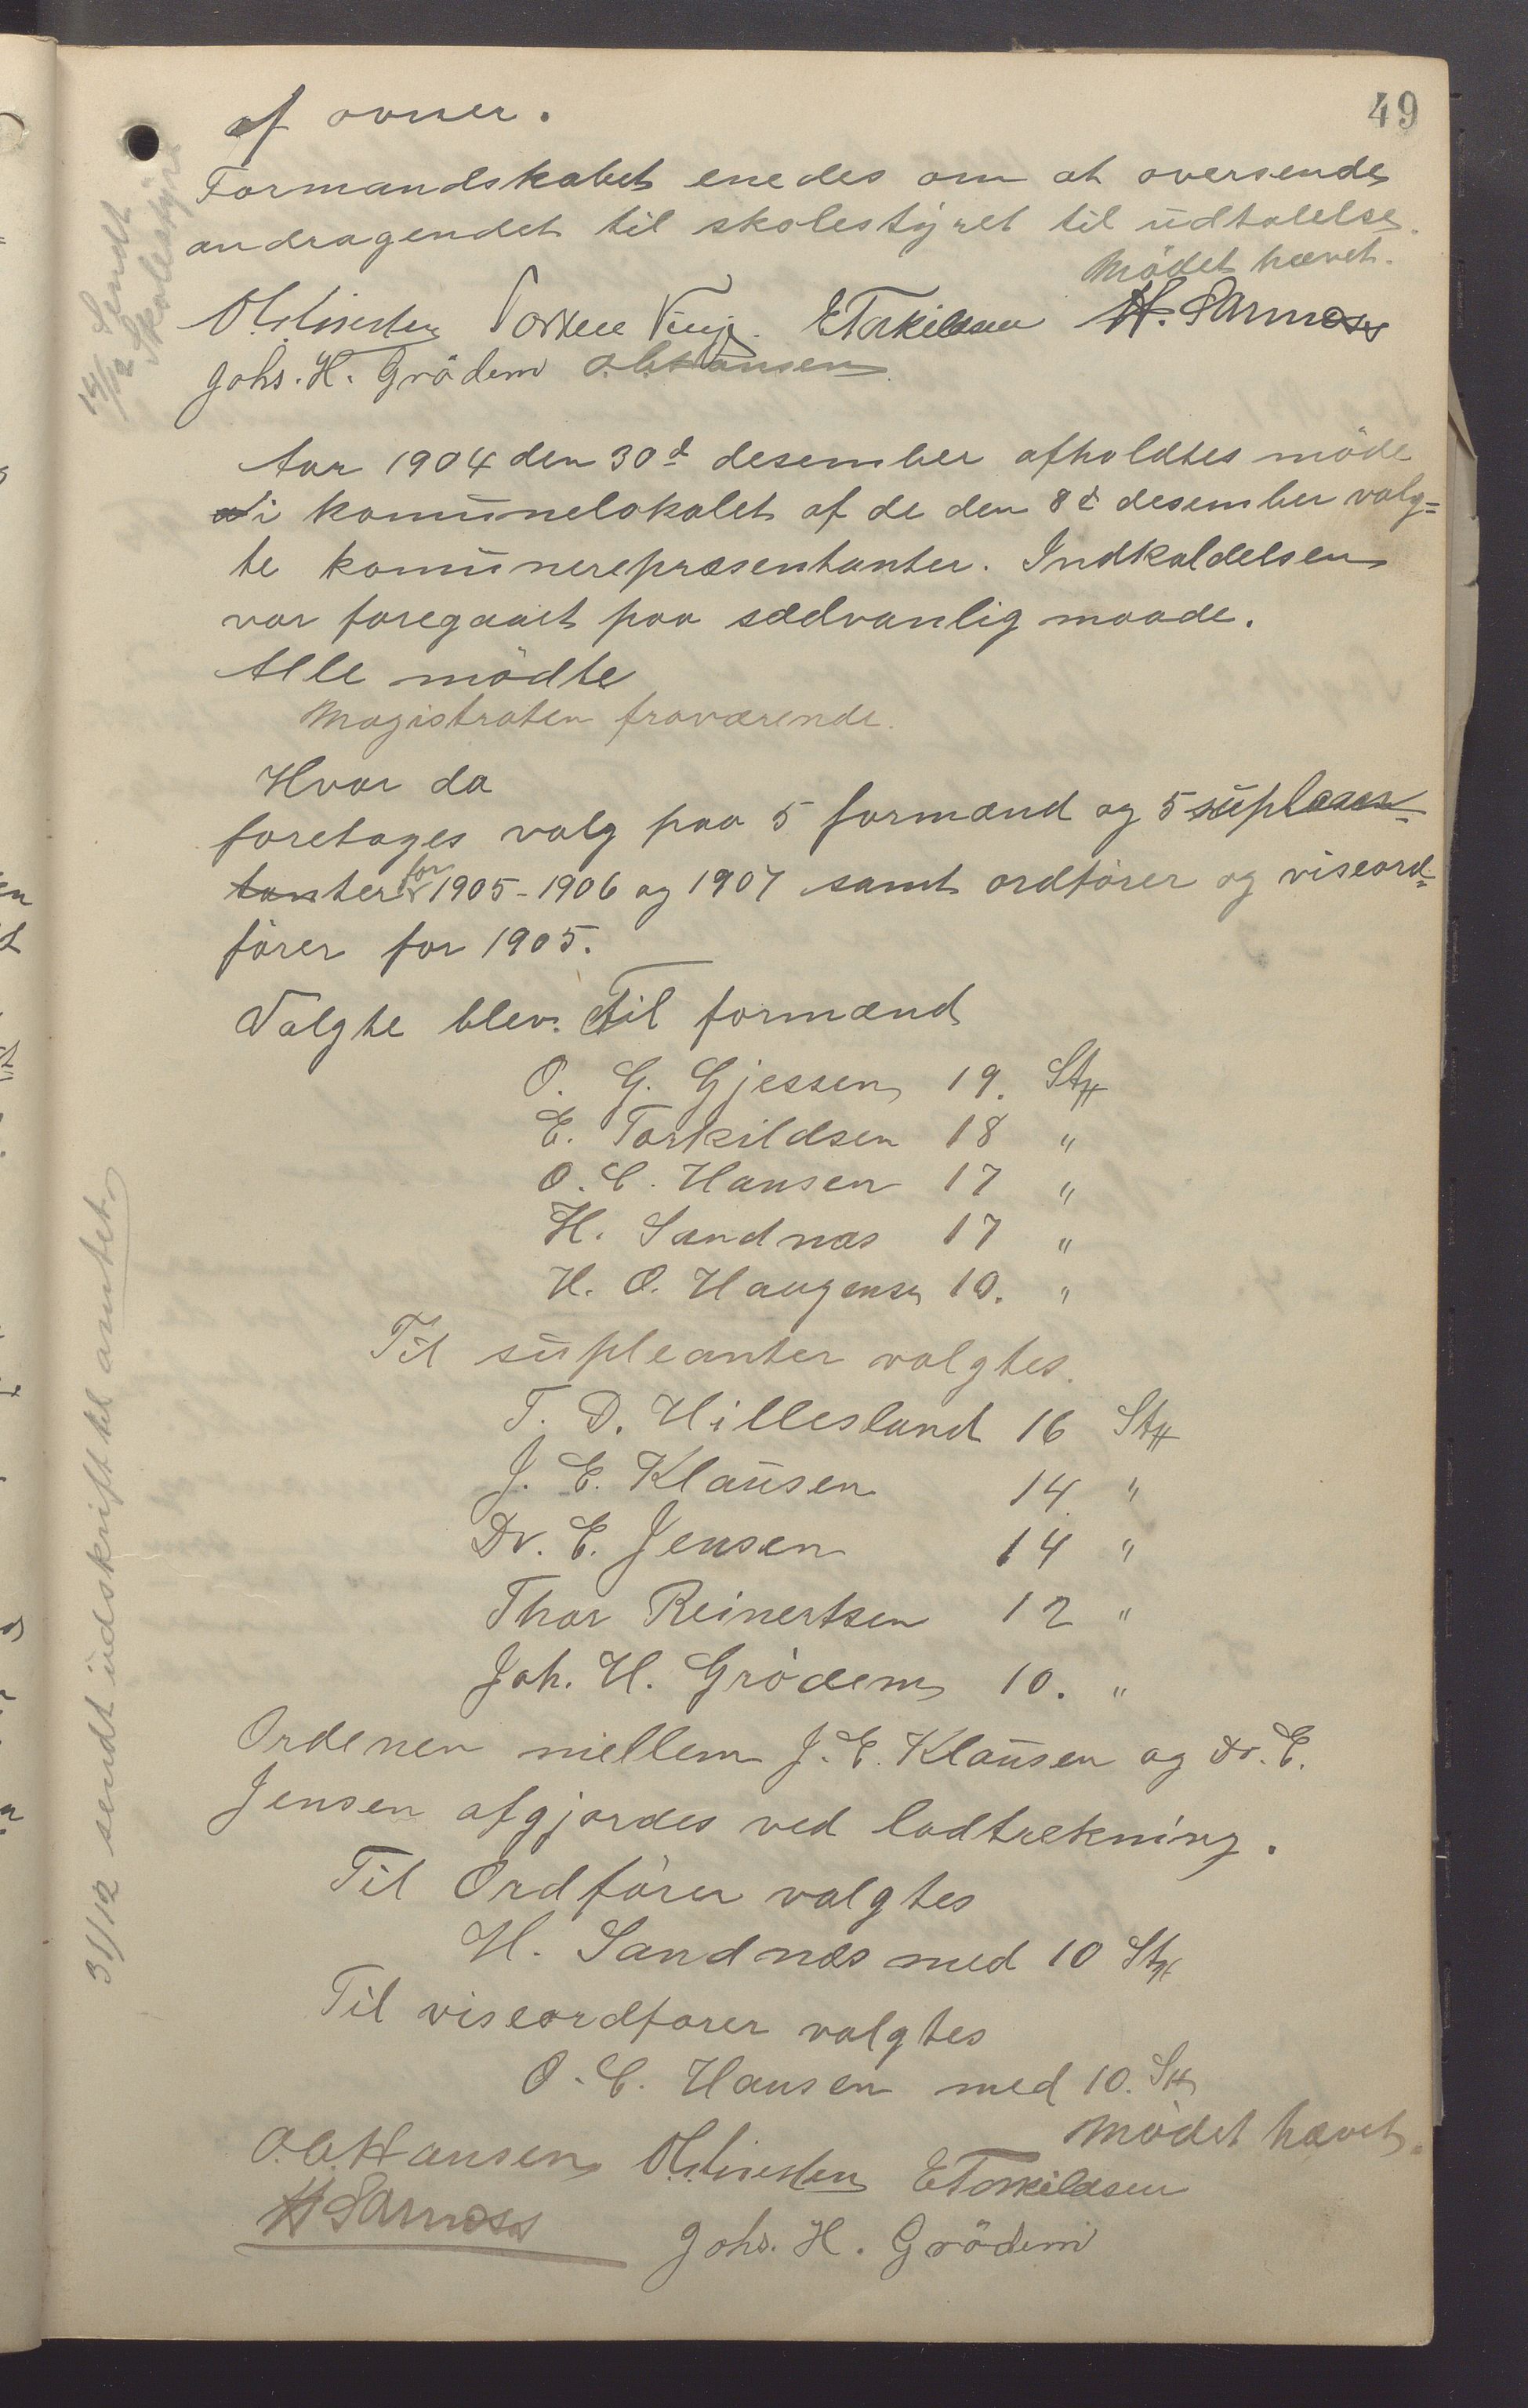 49
af ovner.
Formandskabet enedes om at oversende
andragendet til skolestyret til udtalelse.
Mödet hævet.
14/12 Sendt
Skolestyre
E Torkildsen
Johs. H. Grödem O. C. Hansen
Aar 1904 den 30d desember afholdtes möde
i komunelokalet af de den 8d desember valg=
te komunerepræsentanter. Indkaldelsen
var foregaaet paa sædvanlig maade.
Alle mödte
Magistraten fraværende.
Hvor da
foretages valg paa 5 formænd og 5 suplean=
tanter for 1905-1906 og 1907 samt ordförer og viseord=
förer for 1905.
Valgte blev. Til formænd
O. G. Gjessen 19. St
E. Torkildsen 18 "
O. C. Hansen 17 "
H. Sandnæs 17 "
H. O. Haugensen 10. "
Til supleanter valgtes.
T. D. Hillesland 16 St
J. E. Klausen 14 "
Dr. E. Jensen 14 "
Thor Reinertsen 12 "
Joh. H. Grödem 10. "
Ordenen mellem J. E. Klausen og Dr. E.
Jensen afgjordes ved lodtrekning.
Til Ordförer valgtes
H. Sandnæs med 10 St
Til viseordförer valgtes
O. C. Hansen med 10. St
Mödet hævet.
O. C. Hansen E Torkildsen
Johs. H. Grödem
31/12 sendt udskrift til amtet